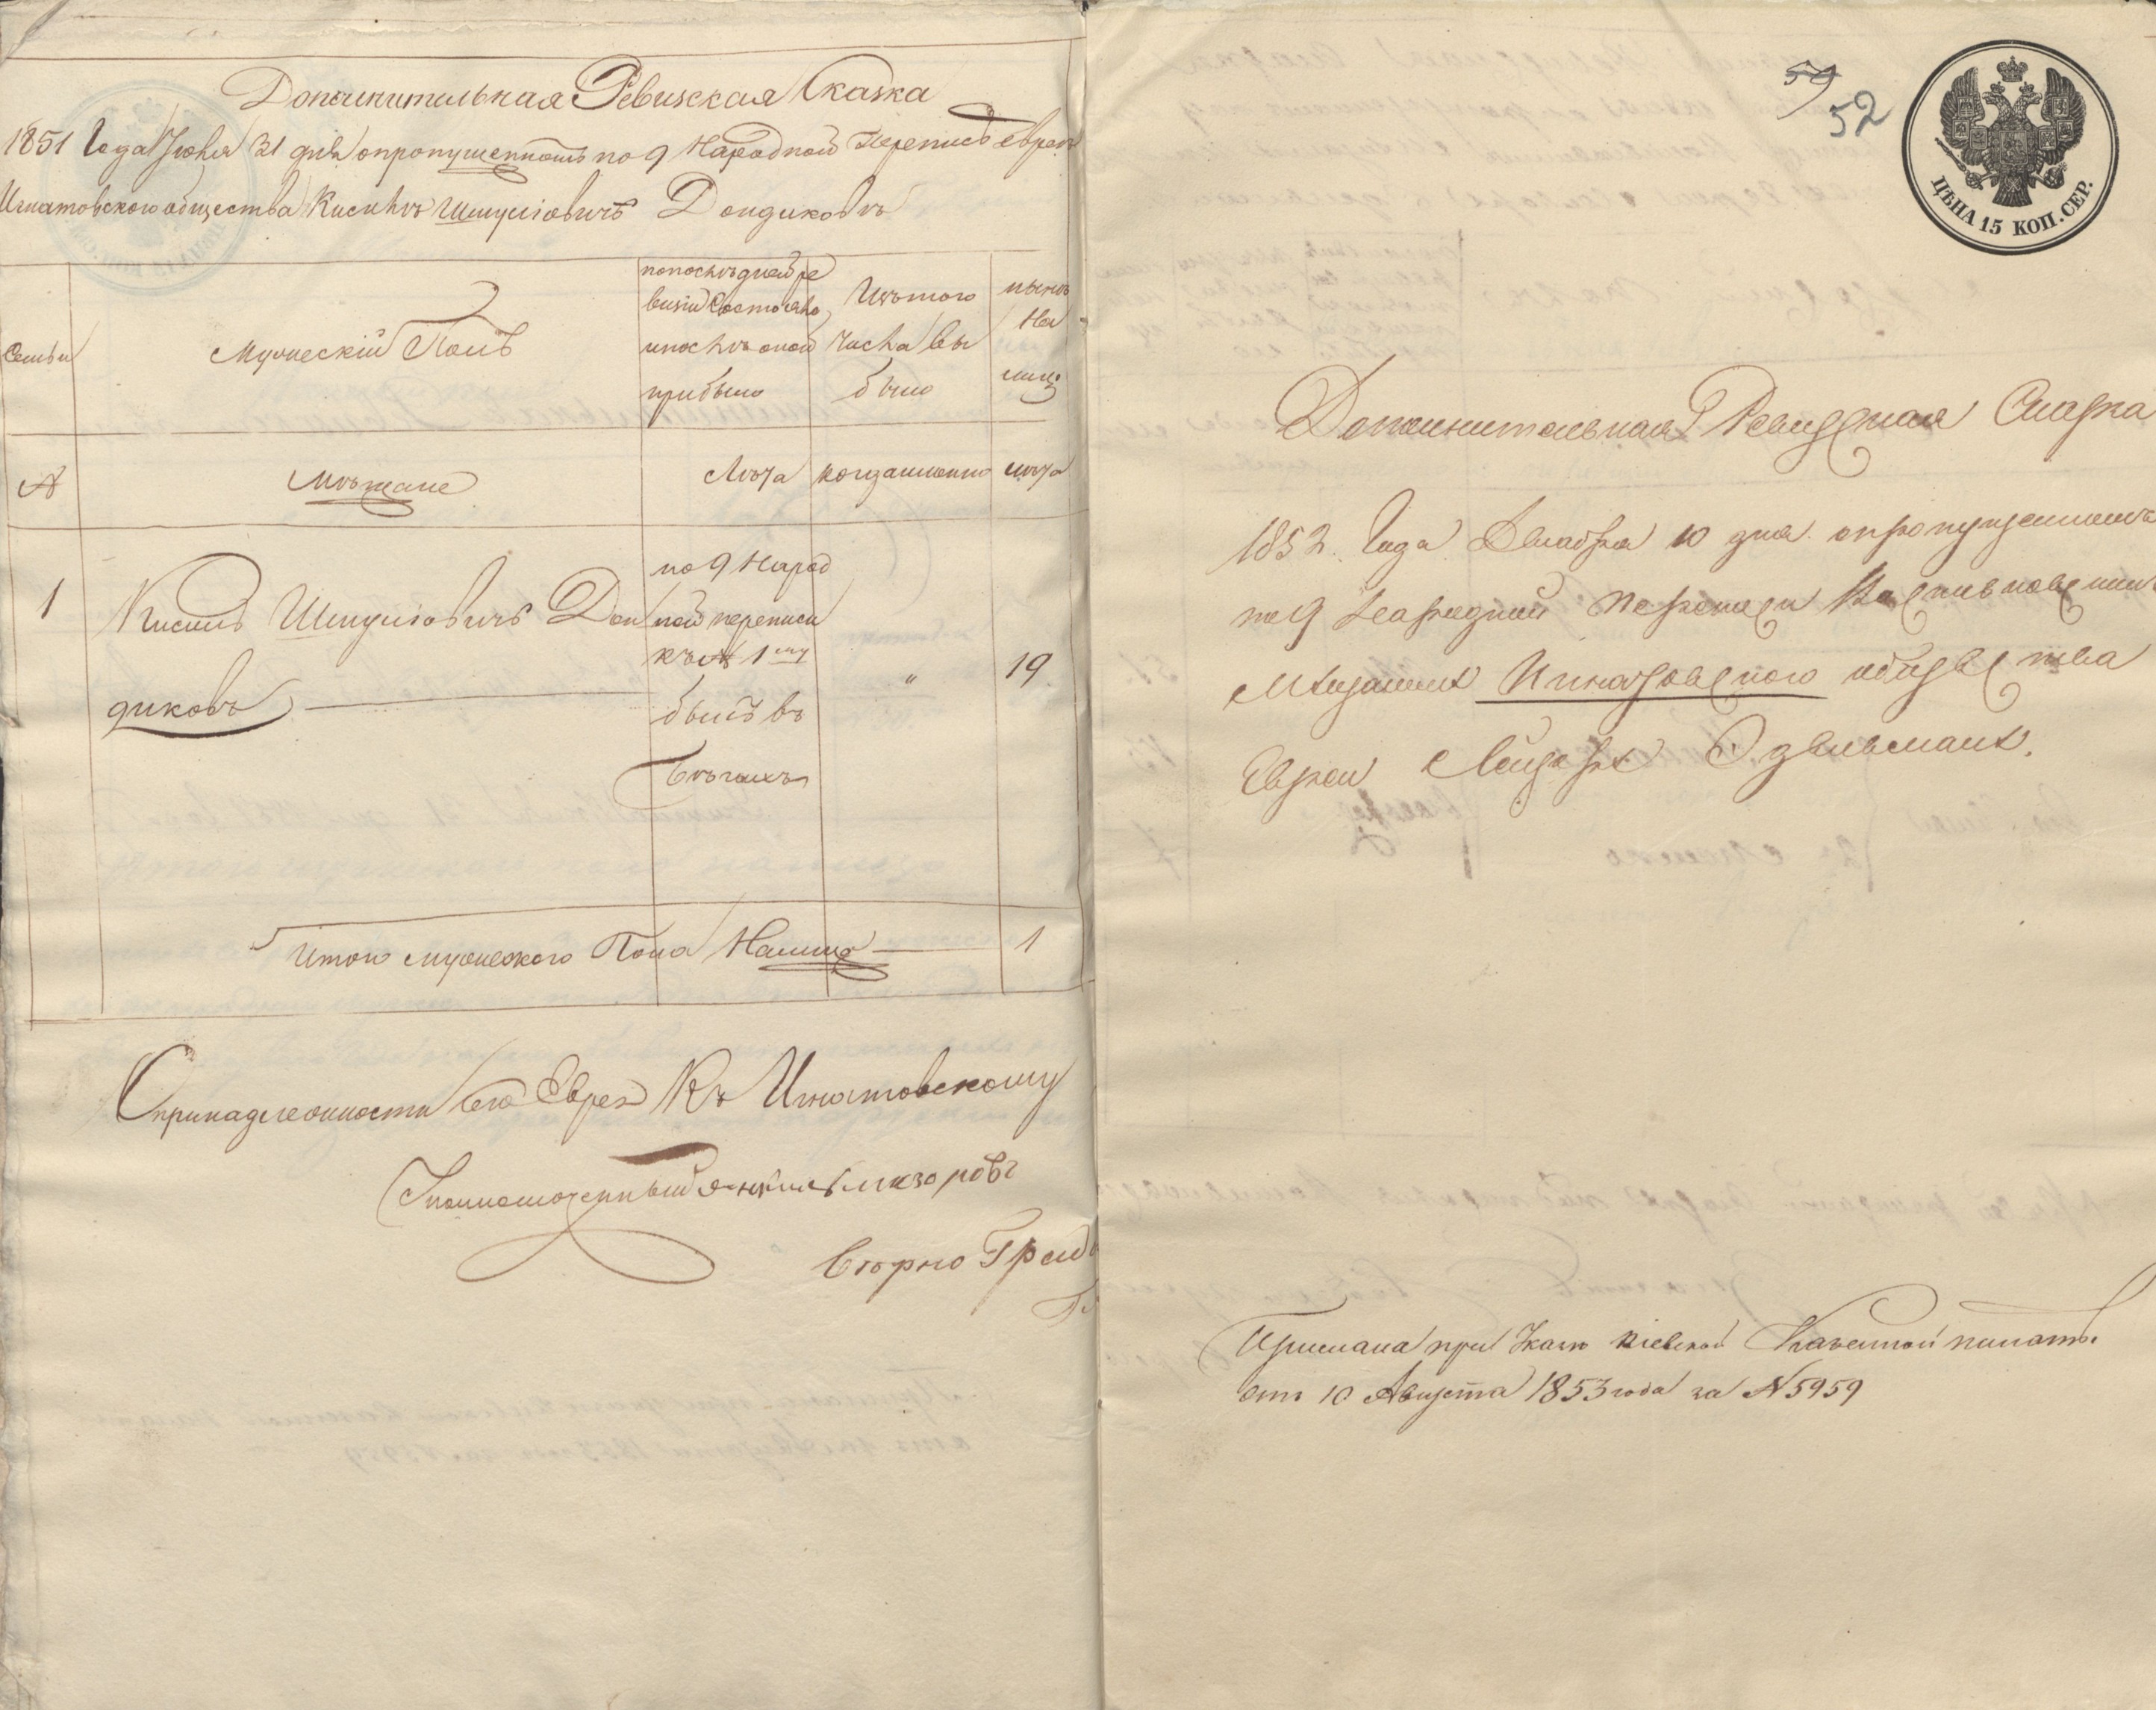 Дополнительная Ревизская Сказка
1851 Года Июля 31 дня опропущенномъ по 9 Народной Переписи еврею
Игнатовского общества Кисилъ Шмулiовичъ Дондиковъ
Семьи
Мужескiй Полъ
попоследней ре
визiи Состояло
ипослъ оной
прибыло
Изътого
числа вы
было
нынъ
На
лицо
№
Мъщане
Лъта
когдаименно
лъта
1
Кисилъ Шмулiовичъ Дон
диковъ
по 9 Народ
ной переписи
къ № 1му
былъ въ
Бъгахъ
"
19
Итого мужеского Пола Налицо
1
Опринадлежности сего Еврея Къ Игнатовскому
Уполномоченный
Върно
59
52
ЦѢНА 15 КОП. СЕР.
Дополнительная Ревизская Сказка
1852 Года Декабря 10 дня опропущенномъ
по 9 Народной Переписи
Мещанинъ Игнатовского общества
Еврей Лейзоръ Эдельманъ.
Прислана при Указъ Кiевской Казенной палаты
отъ 10 Августа 1853 года за № 5959